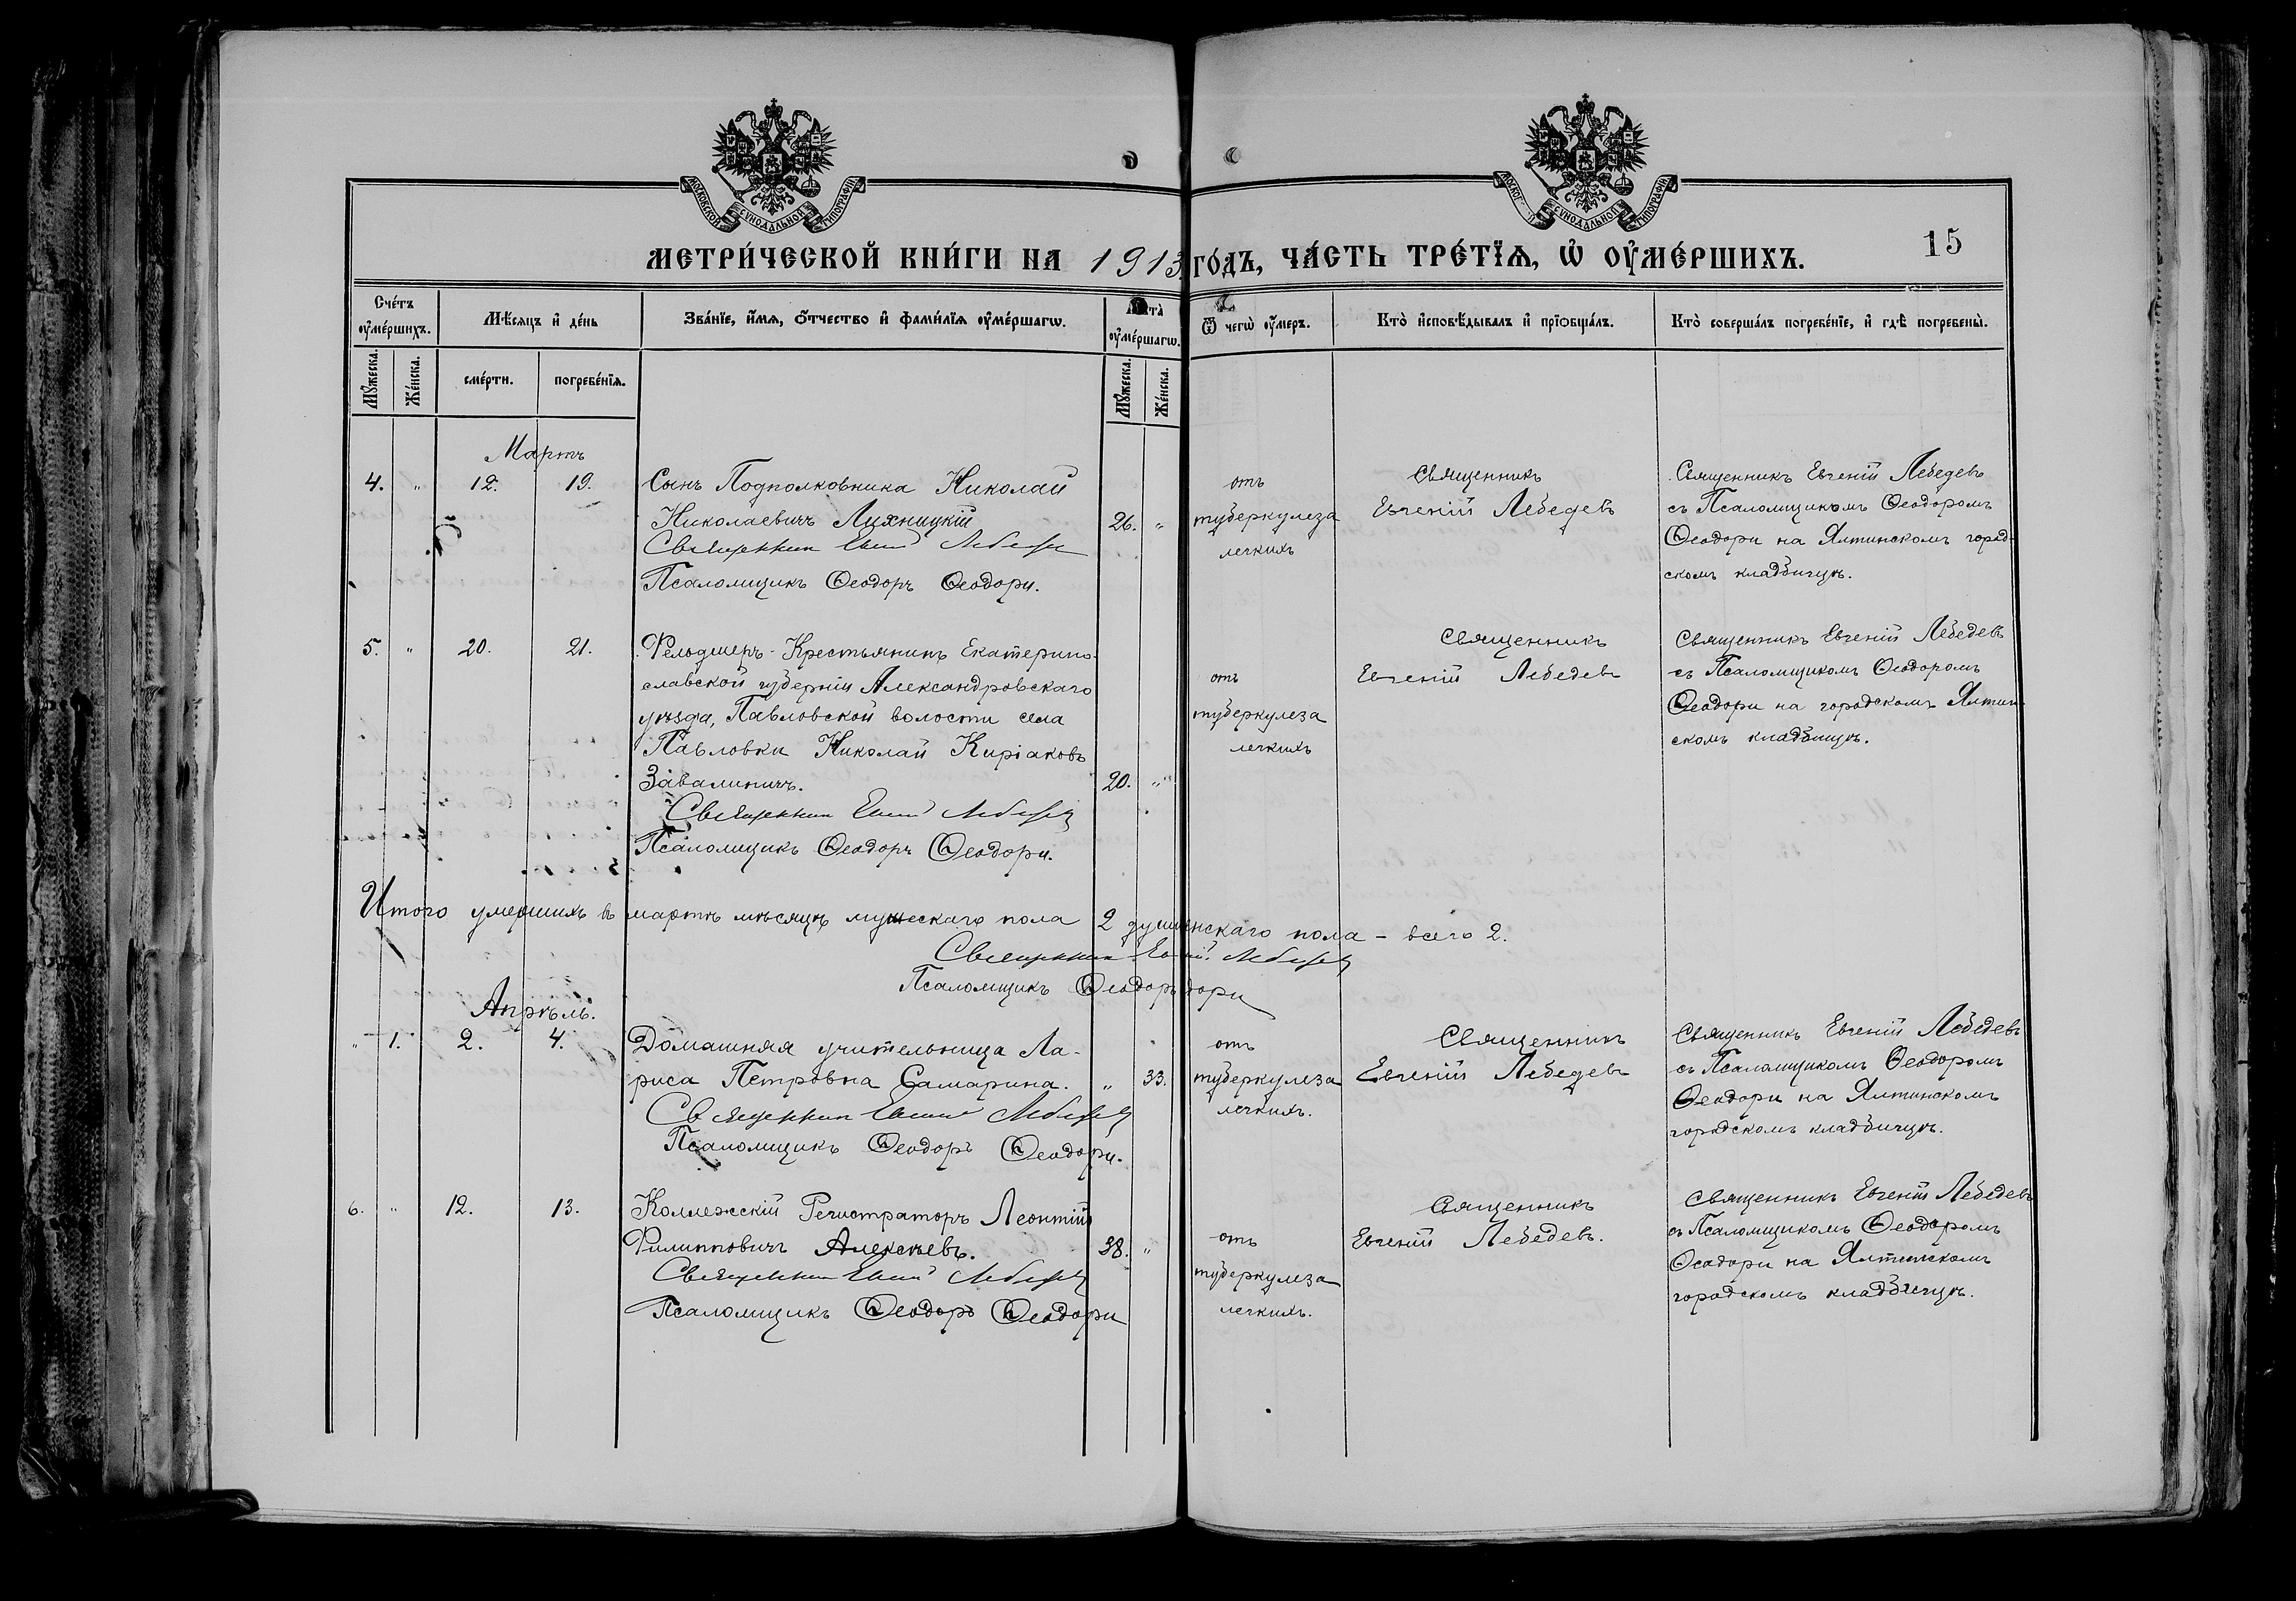 МОСКОВСКОЙ СѴНОДАЛЬНОЙ ТИПОГРАФІИ
МОСКОВ СѴНОДАЛЬНОЙ ТИПОГРАФІИ
МЕТРИ́ЧЕСКОЙ КНИ́ГИ НА 1913 ГО́ДЪ, ЧА́СТЬ ТРЕ́ТЇѦ, Ѡ҆ ОУ҆МЕ́РШИХЪ.
15
Сче́тъ оу҆ме́ршихъ.
Мѣ́сѧцъ и҆ де́нь
Зва́нїе, и҆́мѧ, ѻ҆́тчество и҆ фами́лїѧ оу҆ме́ршагѡ.
Лѣ́та̀ оу҆ме́ршагѡ.
Ѿ чегѡ̀ оу҆́меръ.
Кто̀ и҆сповѣ́дывалъ и҆ прїѡбща́лъ.
Кто̀ соверша́лъ погребе́нїе, и҆ гдѣ̀ погребены̀.
Мꙋ́жеска.
Же́нска.
сме́рти.
погребе́нїѧ.
Мꙋ́жеска.
Же́нска.
Мартъ
4. " 12. 19. Сынъ Подполковника Николай
Николаевичъ Лихницкій 26. "
Священник Евгеній Лебедев
Псаломщикъ Ѳеодоръ Ѳеодори.
отъ
туберкулеза
легкихъ
Священникъ
Евгеній Лебедевъ
Священникъ Евгеній Лебедевъ
съ Псаломщикомъ Ѳеодоромъ
Ѳеодори на Ялтинскомъ город-
скомъ кладбищѣ.
5. " 20. 21. Фельдшеръ-Крестьянинъ Екатерино-
славской губерніи Александровскаго
уѣзда, Павловской волости села
Павловки Николай Киріаковъ
Завалиничъ. 20. "
Священник Евгеній Лебедев
Псаломщикъ Ѳеодоръ Ѳеодори.
отъ
туберкулеза
легкихъ
Священникъ
Евгеній Лебедевъ
Священникъ Евгеній Лебедевъ
съ Псаломщикомъ Ѳеодоромъ
Ѳеодори на городскомъ Ялтин-
скомъ кладбищѣ.
Итого умершихъ въ мартѣ мѣсяцѣ мужескаго пола 2 души женскаго пола – всего 2.
Священник Евгеній Лебедев
Псаломщикъ Ѳеодоръ Ѳеодори
Апрѣль.
" 1. 2. 4. Домашняя учительница Ла-
риса Петровна Самарина. " 33.
Священник Евгеній Лебедев
Псаломщикъ Ѳеодоръ Ѳеодори.
отъ
туберкулеза
легкихъ.
Священникъ
Евгеній Лебедевъ
Священникъ Евгеній Лебедевъ
съ Псаломщикомъ Ѳеодоромъ
Ѳеодори на Ялтинскомъ
городскомъ кладбищѣ.
6. " 12. 13. Коллежскій Регистраторъ Леонтій
Филипповичъ Алексѣевъ. 38. "
Священник Евгеній Лебедев
Псаломщикъ Ѳеодоръ Ѳеодори
отъ
туберкулеза
легкихъ.
Священникъ
Евгеній Лебедевъ.
Священникъ Евгеній Лебедевъ
съ Псаломщикомъ Ѳеодоромъ
Ѳеодори на Ялтинскомъ
городскомъ кладбищѣ.